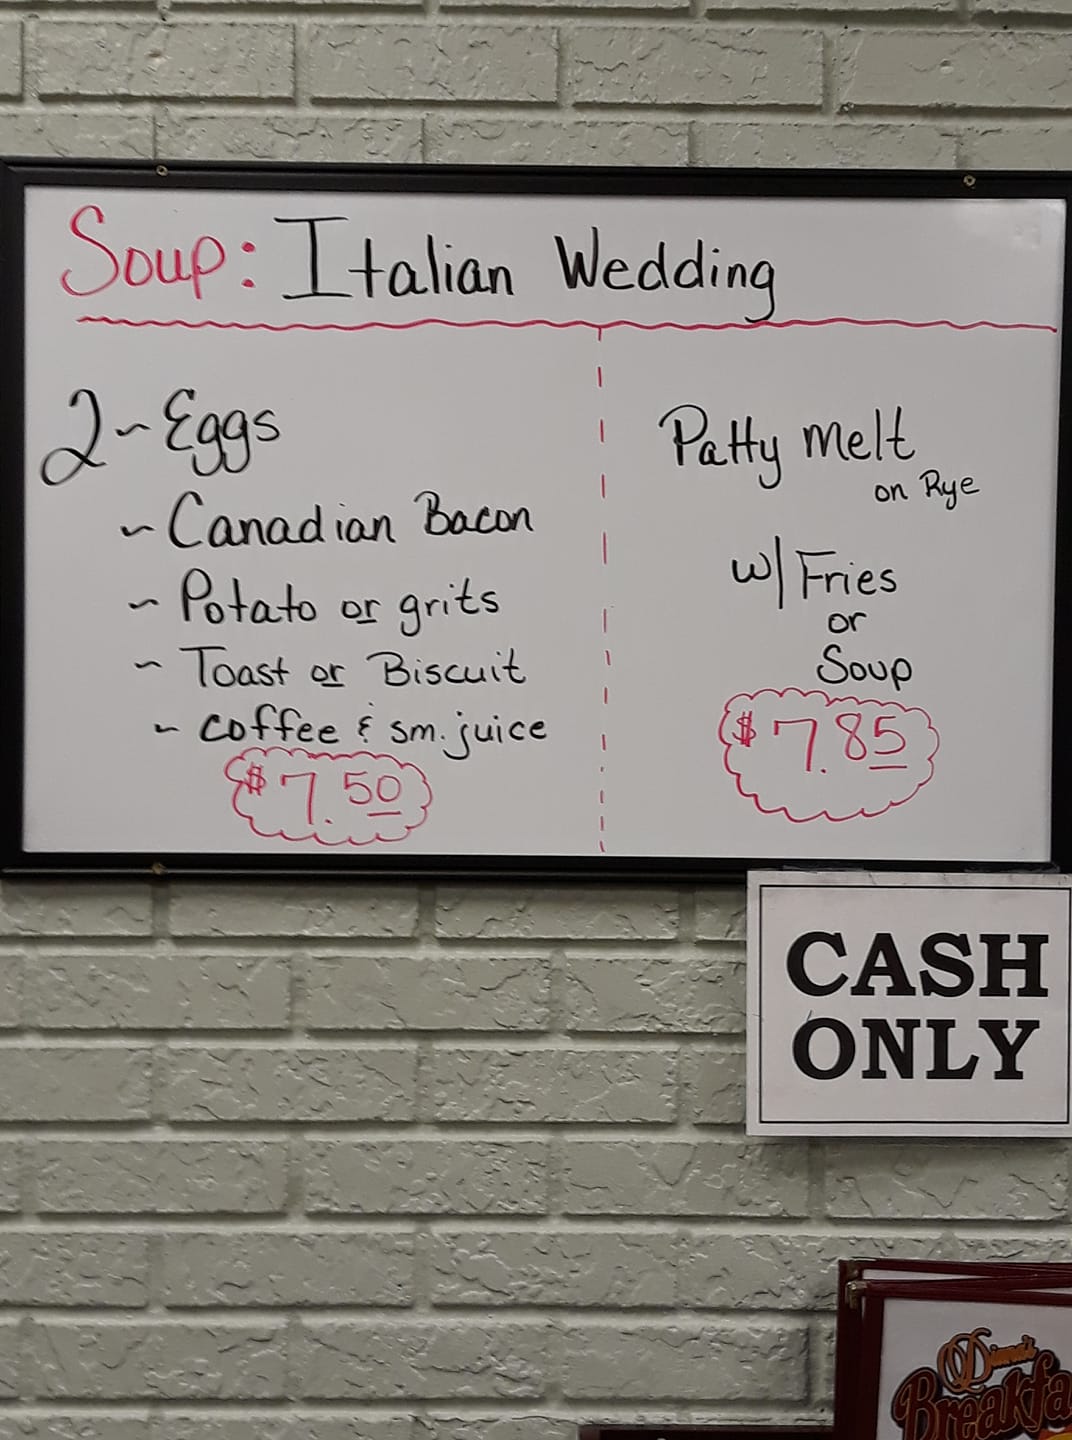 Soup: Italian Wedding
2~Eggs
~ Canadian Bacon
~ Potato or grits
~ Toast or Biscuit
~ coffee & sm. juice
$7.50
Patty melt
on Rye
w/ Fries
or
Soup
$7.85
CASH
ONLY